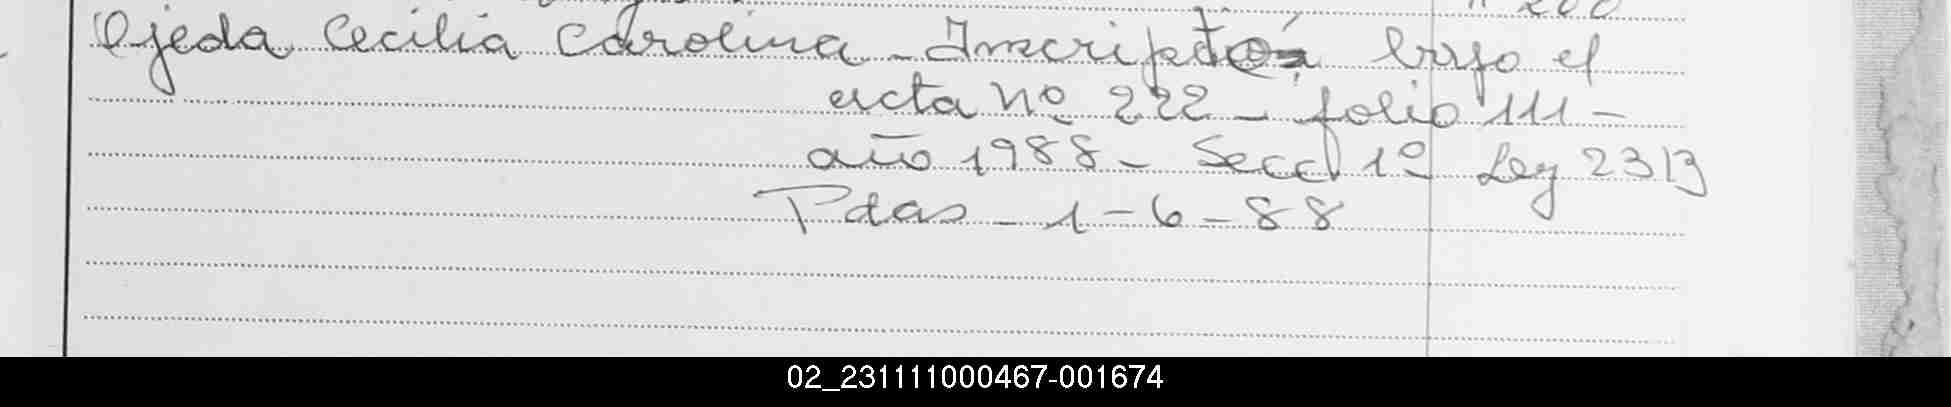 Ojeda Cecilia Carolina - Inscripto bajo el
acta Nº 222 - folio 111 -
año 1988 - Secc 1º Ley 2313
Pdas - 1 - 6 - 88
02_231111000467-001674